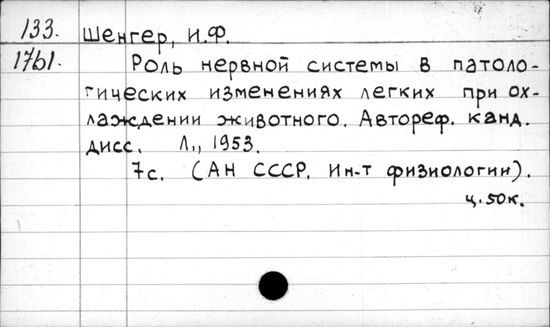 133. Шенгер, И.Ф.
17б1. Роль нервной системы в патоло-
гических изменениях легких при ох-
лаждении животного. Автореф. канд.
дисс. Л., 1953.
7с. (АН СССР. Ин-т физиологии).
ц. 50к.